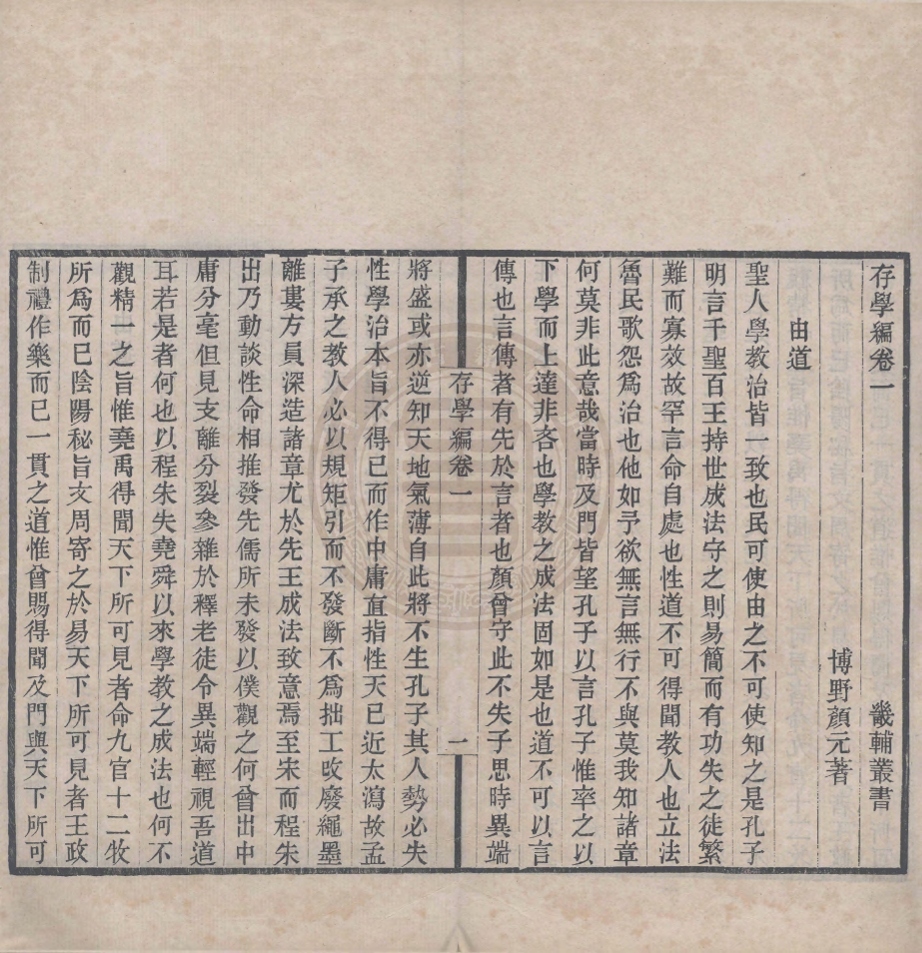 存學編卷一 畿輔叢書
博野顏元著
由道
聖人學教治皆一致也民可使由之不可使知之是孔子
明言千聖百王持世成法守之則易簡而有功失之徒繁
難而寡效故罕言命自處也性道不可得聞教人也立法
魯民歌怨爲治也他如予欲無言無行不與莫我知諸章
何莫非此意哉當時及門皆望孔子以言孔子惟率之以
下學而上達非吝也學教之成法固如是也道不可以言
傳也言傳者有先於言者也顏曾守此不失子思時異端
存學編卷一 一
將盛或亦逆知天地氣薄自此將不生孔子其人勢必失
性學治本旨不得已而作中庸直指性天已近太瀉故孟
子承之教人必以規矩引而不發斷不爲拙工改廢繩墨
離婁方員深造諸章尤於先王成法致意焉至宋而程朱
出乃動談性命相推發先儒所未發以僕觀之何曾出中
庸分毫但見支離分裂參雜於釋老徒令異端輕視吾道
耳若是者何也以程朱失堯舜以來學教之成法也何不
觀精一之旨惟堯禹得聞天下所可見者命九官十二牧
所爲而已陰陽秘旨文周寄之於易天下所可見者王政
制禮作樂而已一貫之道惟曾賜得聞及門與天下所可